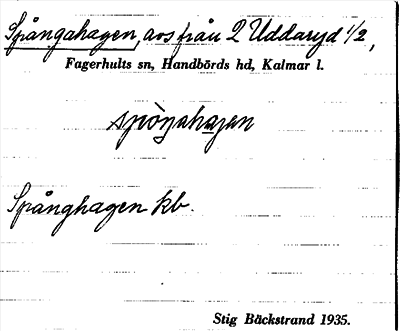 Spångahagen, avs från 2 Uddaryd 1/2,
Fagerhults sn, Handbörds hd, Kalmar l.
Spånghagen kb.
Stig Bäckstrand 1935.